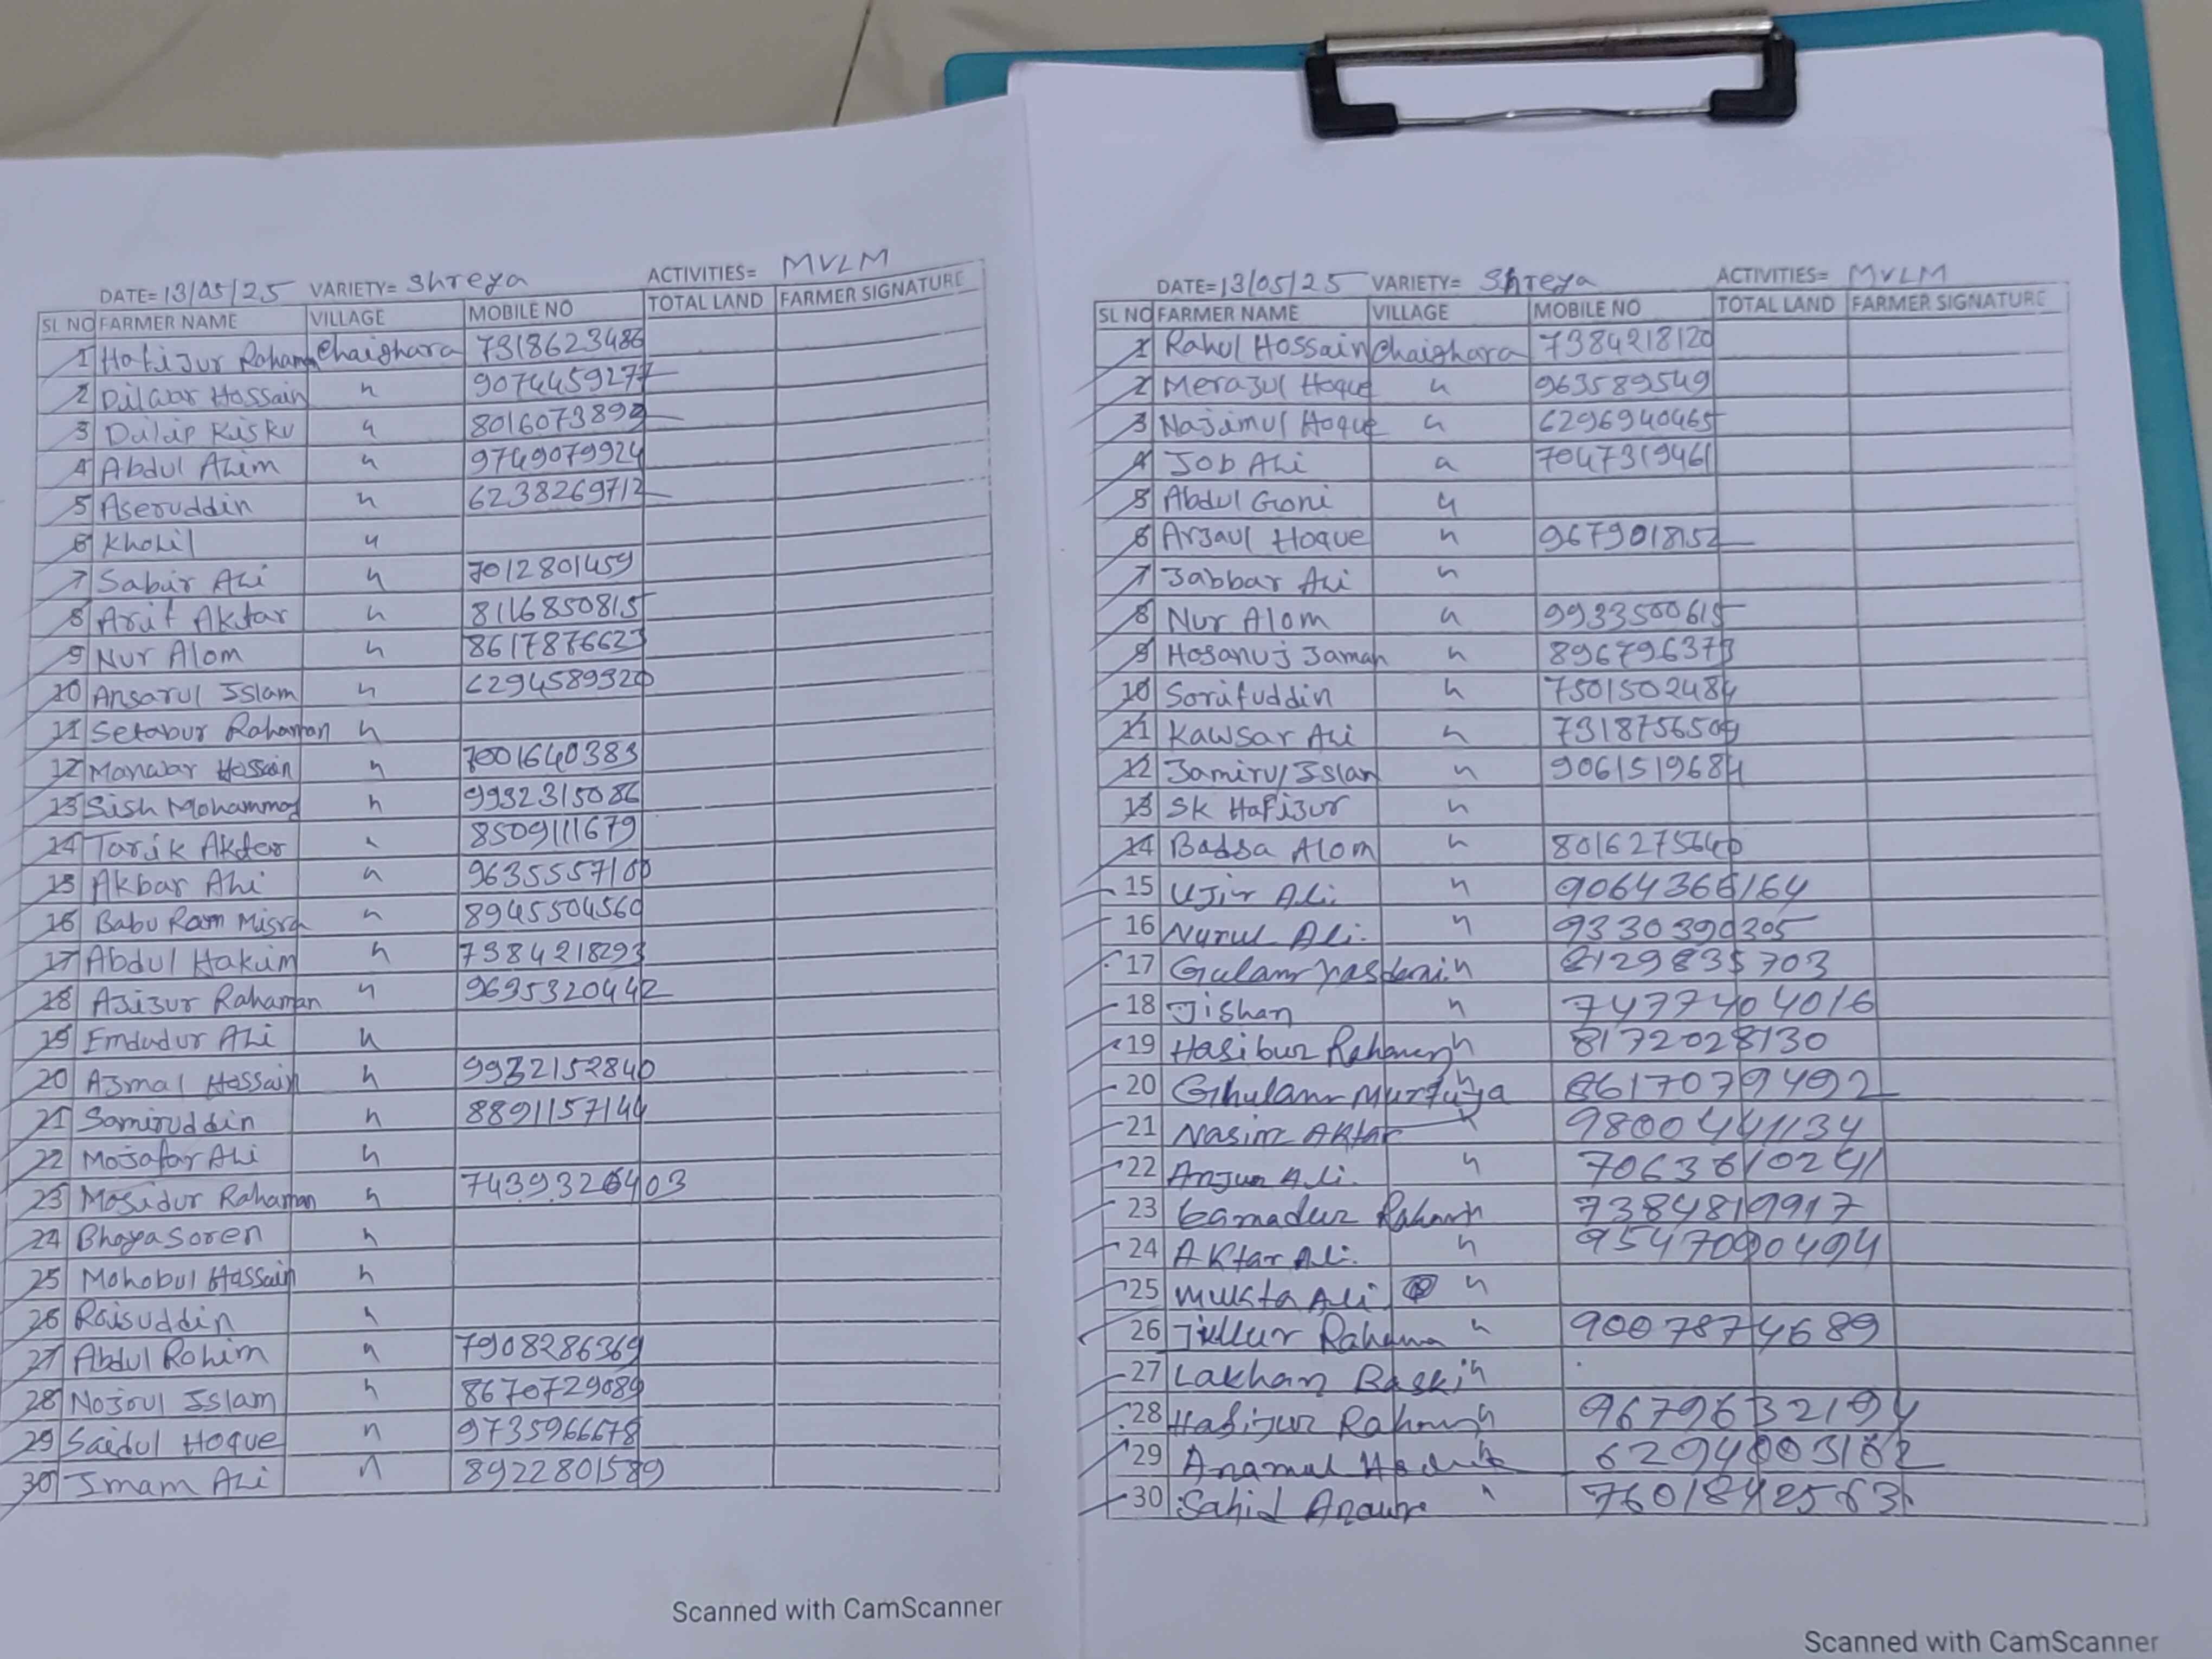 DATE= 13/05/25 VARIETY= Shreya ACTIVITIES= MVLM
SL NO FARMER NAME VILLAGE MOBILE NO TOTAL LAND FARMER SIGNATURE
1 Hafijur Raham Chaighara 7318623486
2 Dilwar Hossain " 9074459277
3 Dilip Kisku " 8016073899
4 Abdul Alim " 9749079924
5 Aseruddin " 6238269712
6 Kholil "
7 Sabir Ali " 7012801459
8 Arif Aktar " 8116850815
9 Nur Alom " 8617876623
10 Ansarul Islam " 6294589320
11 Setabur Rahaman "
12 Manwar Hossain " 7001640383
13 Sish Mohammad " 9932315086
14 Tarik Akter " 8509111679
15 Akbar Ali " 9635557100
16 Babu Ram Misra " 8945504560
17 Abdul Hakim " 7384218293
18 Ajizur Rahaman " 9695320442
19 Emdudur Ali "
20 Ajmal Hossain " 9932152840
21 Samiruddin " 8891157144
22 Mojafar Ali "
23 Mosidur Rahaman " 7439326403
24 Bhoya Soren "
25 Mohobul Hassain "
26 Raisuddin "
27 Abdul Rohim " 7908286369
28 Nojrul Islam " 8670729089
29 Saidul Hoque " 9735966678
30 Imam Ali " 8922801589
Scanned with CamScanner
DATE= 13/05/25 VARIETY= Shreya ACTIVITIES= MVLM
SL NO FARMER NAME VILLAGE MOBILE NO TOTAL LAND FARMER SIGNATURE
1 Rahul Hossain Chaighara 7384218120
2 Merazul Hoque " 963589549
3 Najimul Hoque " 6296940465
4 Job Ali " 7047319461
5 Abdul Goni "
6 Arjaul Hoque " 9679018152
7 Jabbar Ali "
8 Nur Alom " 9933500615
9 Hosanuj Jaman " 896796373
10 Sorifuddin " 7501502484
11 Kawsar Ali " 7318756509
12 Jamirul Islam " 9061519684
13 SK Hafijur "
14 Badsa Alom " 8016275640
15 Ujir Ali. " 9064366164
16 Nurul Ali. " 9330390305
17 Gulam Yasdani " 8129835703
18 Jishan " 7477404016
19 Hasibur Rahaman " 8172028130
20 Ghulam Murtuja " 8617079492
21 Nasim Aktar " 9800441134
22 Anjum Ali. " 7063610241
23 Rahman " 7384819917
24 Aktar Ali. " 9547090494
25 Mukta Ali "
26 Jillur Rahama " 9007874689
27 Lakhan Baski "
28 Habijur Rahman " 9679632194
29 Anamul " 6294003182
30 Sahid " 7601842563
Scanned with CamScanner